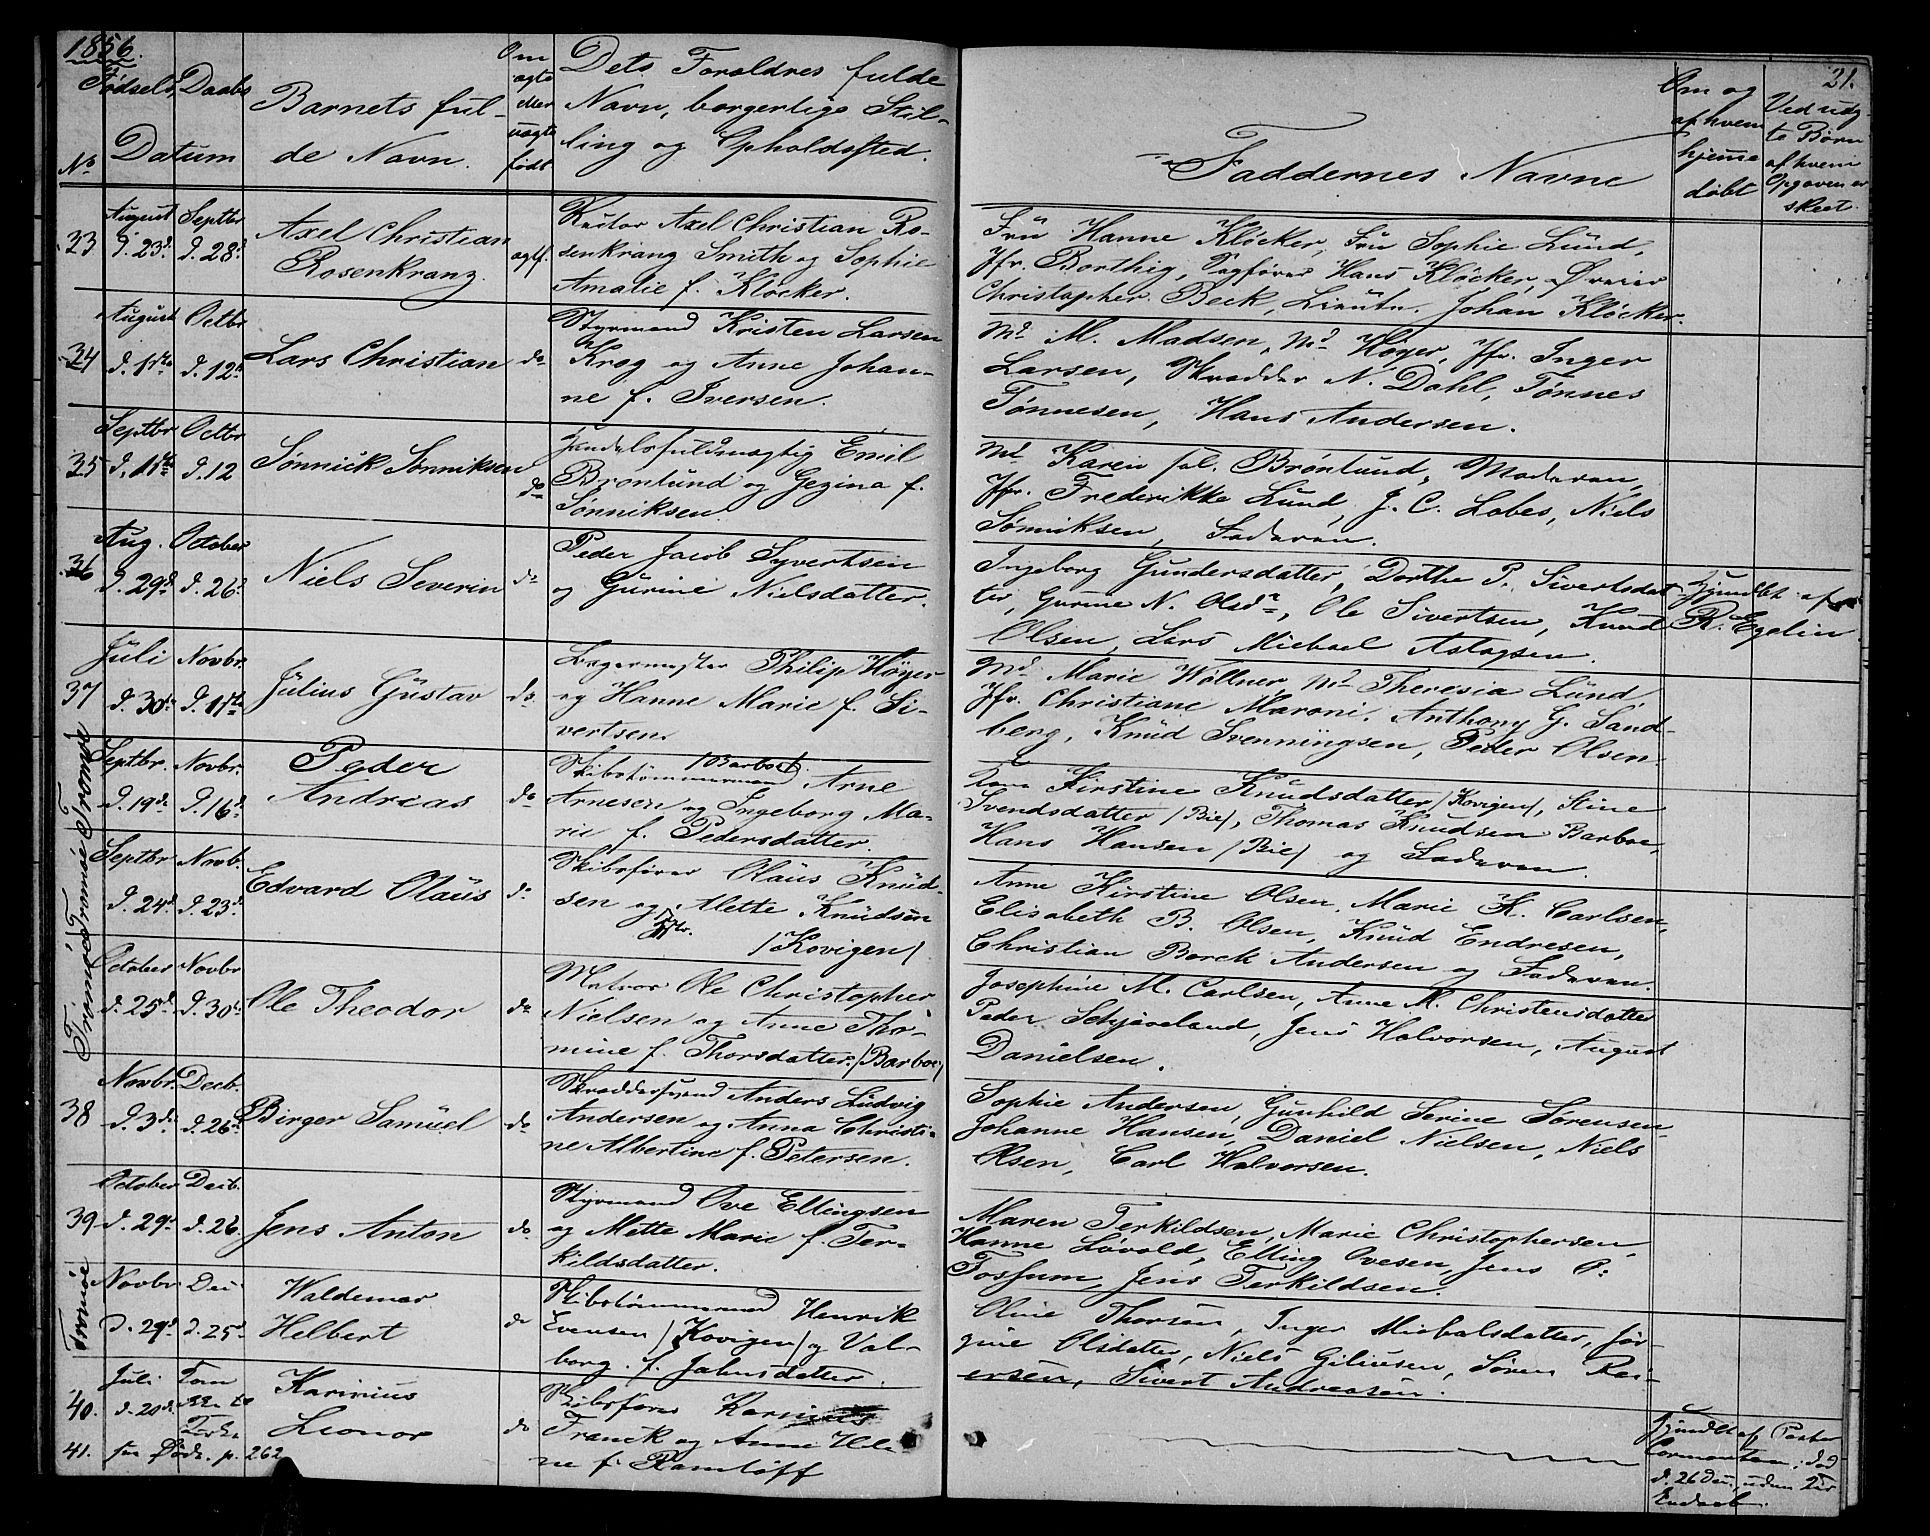 1856.
21.
Fødsels Daabs
Datum
No
Barnets ful-
de Navn.
Om
ægte
eller
uægte
født
Dets Forældres fulde
Navn, borgerlige Stil-
ling og Opholdssted.
Faddernes Navne
Om og
af hvem
hjemme
døbt
Ved uæg-
te Børn
af hvem
Opgaven er
skeet.
33
August
d. 23d
Septbr
d. 28d
Axel Christian
Rosenkranz.
ægtf.
Axel Christian Ro-
senkranz Smith og Sophie
Amalie f. Kløcker.
Fru Hanne Kløcker, Fru Sophie Lund,
Jfr. Borthig, Sagfører Hans Kløcker,
Christopher Beck, Lieutn. Johan Kløcker.
34
August
d. 1ste
Octbr
d. 12t
Lars Christian
do
Styrmand Kristen Larsen
Krog og Anne Johan-
ne f. Iversen.
Md M. Madsen, Md Høyer, Jfr. Inger
Larsen, Skrædder N. Dahl, Tønnes
Tønnesen, Hans Andersen.
35
Septbr
Octbr
d. 12
Sønnick Sønniksen
do
Handelsfuldmægtig Emil
Brønlund og Gezina f.
Sønniksen
Md Karen sal. Brønlund, Moderen,
Jfr. Frederikke Lund, J. C. Lobes, Niels
Sønniksen, Faderen.
36
Aug.
d. 29d
October
d. 26d
Niels Severin
do
Peder Jacob Syvertsen
og Gurine Nielsdatter.
Ingeborg Gundersdatter, Dorthe P. Sivertsdat-
ter, Gurine N. Olsdr, Ole Sivertsen, Knud
Olsen, Lars Michael Aslagsen.
Hjemdbt af
R. Egelin
37
Juli
d. 30te
Novbr.
d. 1ste
Julius Gustav
do.
Bagermester Philip Høyer
og Hanne Marie f. Si-
vertsen
Md Marie Wöllner, Md Theresia Lund,
Jfr. Christiane Maroni, Anthony G. Sand-
berg, Knud Svenningsen, Peder Olsen.
Tromøe
Septbr.
d. 19de
Novbr.
d. 16d
Peder
Andreas
do
Skibstømmermand /Barboe/ Arne
Arnesen og Ingeborg Ma-
rie f. Pedersdatter.
Kirstine Knudsdatter /Kovigen/, Stine
Svendsdatter /Bie/, Thomas Knudsen Barboe,
Hans Hansen /Bie/ og Faderen.
Tromøe
Septbr
d. 24d
Novb.
d. 23d
Edvard Olaus
do
Skibsfører Olaus Knud-
sen og Alette Knudsen
/Kovigen/
Anne Kirstine Olsen, Marie K. Carlsen,
Elisabeth B. Olsen, Knud Endresen,
Christian Borck Andersen og Faderen.
Tromøe
October
d. 25d
Novbr
d. 30te
Ole Theodor
do
Matros Ole Christopher
Nielsen og Anne Thor-
mine f. Thorsdatter. /Barboe/
Josephine M. Carlsen, Anne M. Christensdatter
Peder Schjøveland, Jens Halvorsen, August
Danielsen.
38
Novbr.
d. 3de
Decb.
d. 26de
Birger Samuel
do
Skræddersvend Anders Ludvig
Andersen og Anna Christi-
ne Albertine f. Petersen.
Sophie Andersen, Gunhild Serine Sørensen
Johanne Hansen, Daniel Nielsen, Niels
Olsen, Carl Halvorsen.
39
October
d. 29d
Decb.
d. 26
Jens Anton
do
Styrmand Ove Ellingsen
og Mette Marie f. Ter-
kildsdatter.
Maren Terkildsen, Marie Christophersen,
Hanne Løvold, Elling Ovesen, Jens P.
Fossum, Jens Terkildsen.
Tromøe
Novbr
d. 29d
d. 25d
Waldemar
Helbert
do
Skibstømmermand Henrik
Evensen /Kovigen/ og Val-
borg f. Jahnsdatter.
Oline Thorsen, Inger Michalsdatter, Jør-
gine Olsdatter, Niels Giliusen, Søren Rei-
ersen, Sivert Andreasen.
40.
Juli
d. 20d.
Karinius
Leonor
do
Skibsfører Karinius
Franck og Anne Hele-
ne f. Ramløff
Hjemdbt af Pastor
død
d. 26 uden
41. see Døde. p. 262